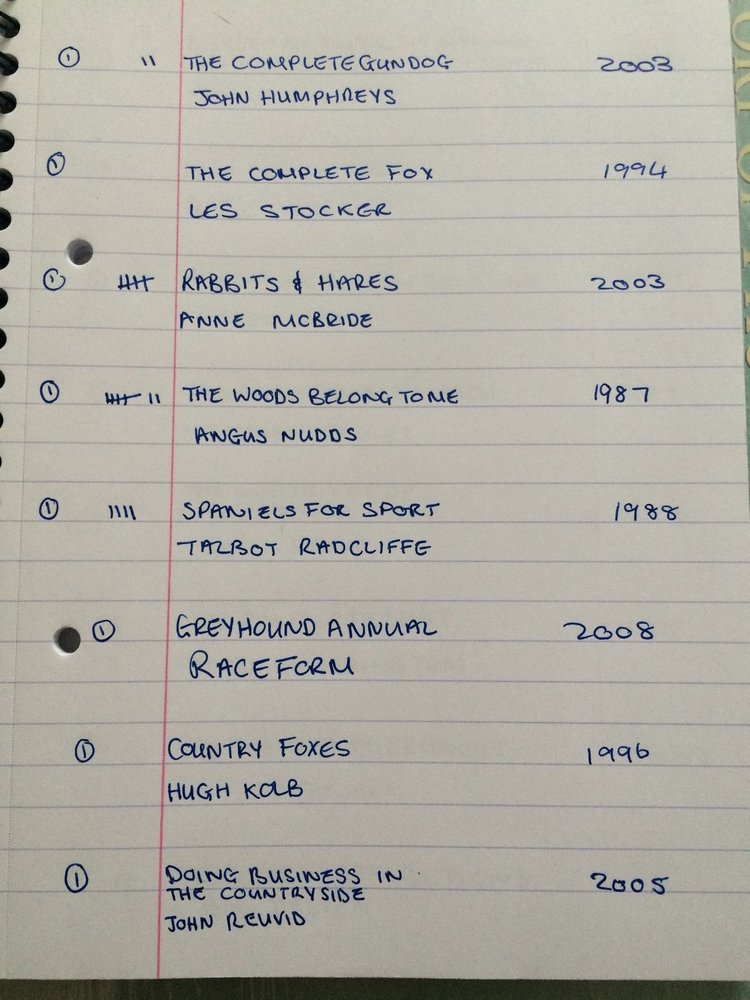 ① || THE COMPLETE GUNDOG 2003
JOHN HUMPHREYS
① THE COMPLETE FOX 1994
LES STOCKER
① |||| RABBITS & HARES 2003
ANNE MCBRIDE
① |||| || THE WOODS BELONG TO ME 1987
ANGUS NUDDS
① |||| SPANIELS FOR SPORT 1988
TALBOT RADCLIFFE
① GREYHOUND ANNUAL 2008
RACEFORM
① COUNTRY FOXES 1996
HUGH KOLB
① DOING BUSINESS IN 2005
THE COUNTRYSIDE
JOHN REUVID